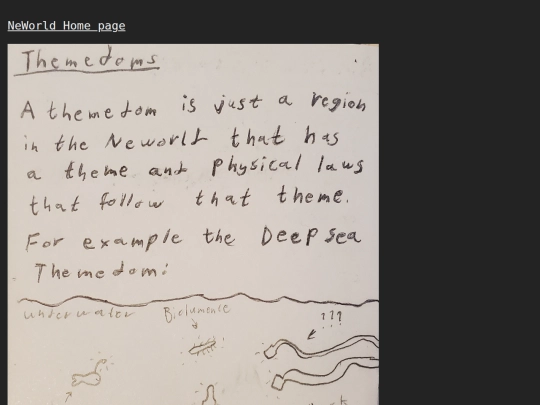 NeWorld Home page
Themedoms
A themedom is just a region
in the Neworld that has
a theme and physical laws
that follow that theme.
For example the Deep sea
Themedom:
underwater
???